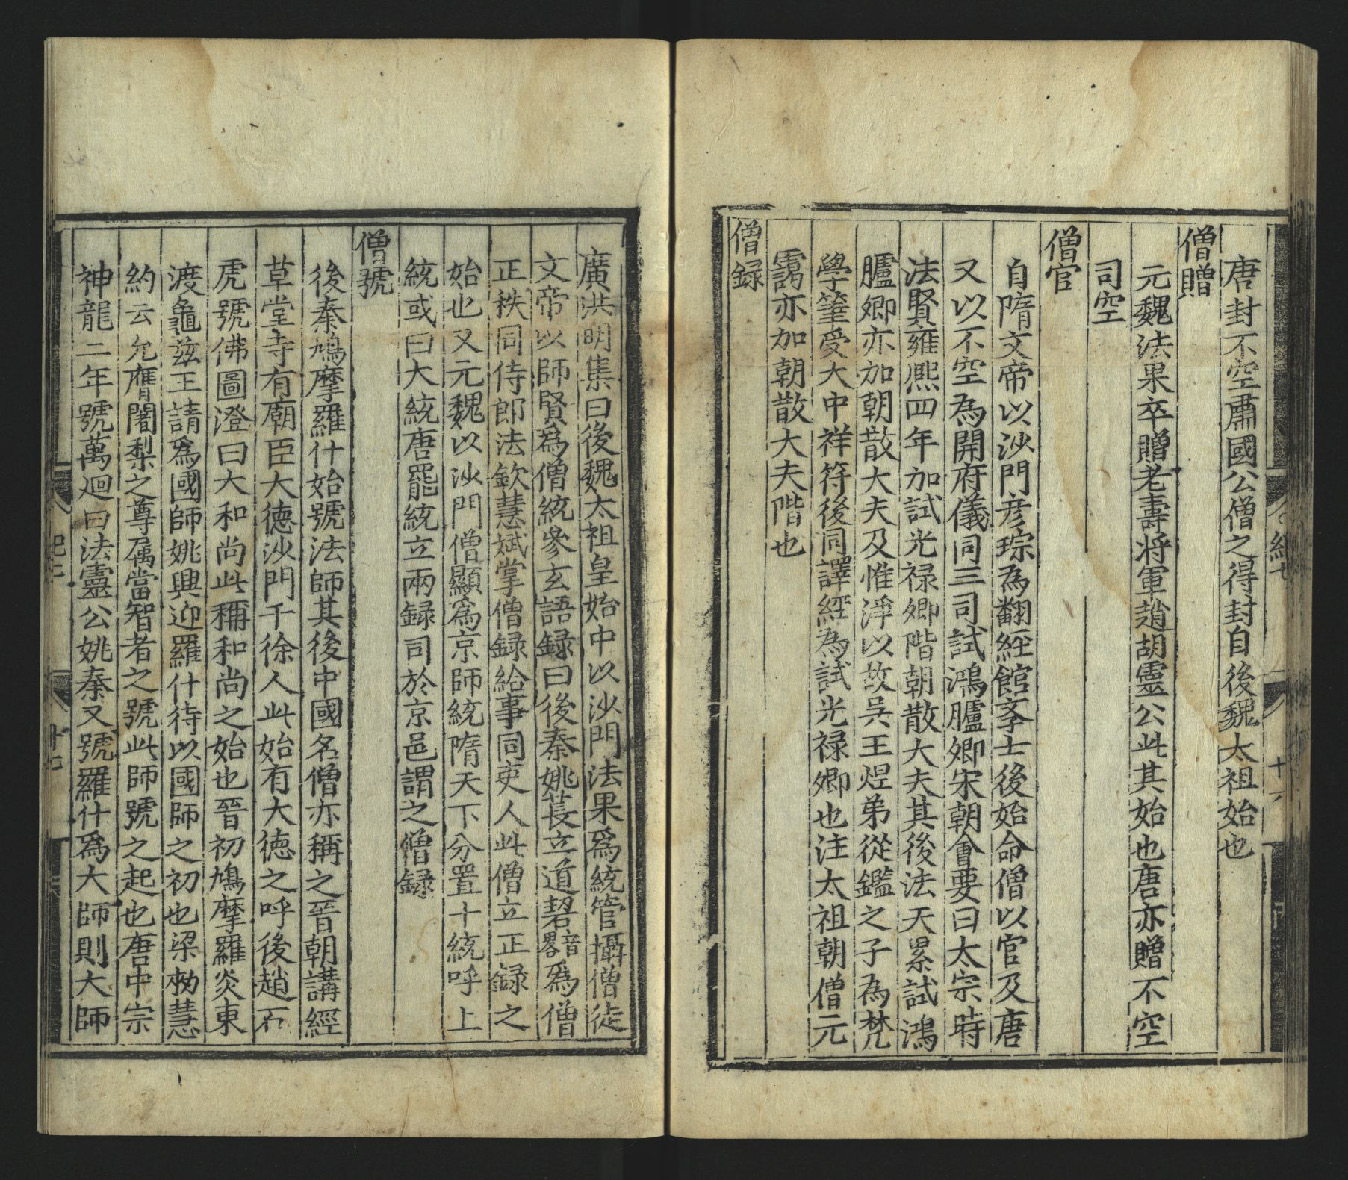 唐封不空肅國公僧之得封自後魏太祖始也
僧贈
元魏法果卒贈老壽將軍趙胡靈公此其始也唐亦贈不空
司空
僧官
自隋文帝以沙門彦琮為翻經館學士後始命僧以官及唐
又以不空為開府儀同三司試鴻臚卿宋朝會要曰太宗時
法賢雍熙四年加試光禄卿階朝散大夫其後法天累試鴻
臚卿亦加朝散大夫及惟淨以故吳王煜弟從鑑之子為梵
學筆受大中祥符後同譯經為試光禄卿也注太祖朝僧元
靄亦加朝散大夫階也
僧録
廣洪明集曰後魏太祖皇始中以沙門法果爲統管攝僧徒
文帝以師賢爲僧統參玄語録曰後秦姚萇立道䂮音略爲僧
正秩同侍郎法欽慧斌掌僧録給事同吏人此僧立正録之
始也又元魏以沙門僧顯爲京師統隋天下分置十統呼上
統或曰大統唐罷統立兩録司於京邑謂之僧録
僧號
後秦鳩摩羅什始號法師其後中國名僧亦稱之晉朝講經
草堂寺有廟臣大德沙門千徐人此始有大德之呼後趙石
虎號佛圖澄曰大和尚此稱和尚之始也晉初鳩摩羅炎東
渡龜茲王請爲國師姚興迎羅什待以國師之初也梁勑慧
約云允膺闍梨之尊属當智者之號此師號之起也唐中宗
神龍二年號萬迴曰法靈公姚秦又號羅什爲大師則大師